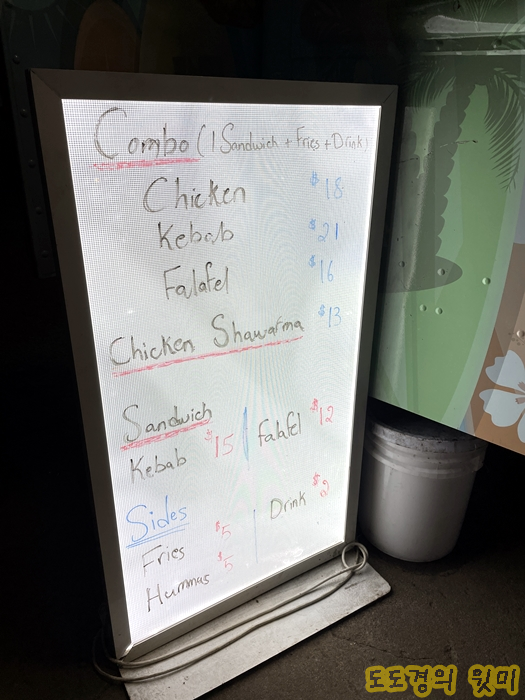 Combo (1 Sandwich + Fries + Drink)
Chicken $18
Kebab $21
Falafel $16
Chicken Shawarma $13
Sandwich
Kebab $15 Falafel $12
Sides Drink $2
Fries $5
Hummas $5
도도경의 윗미